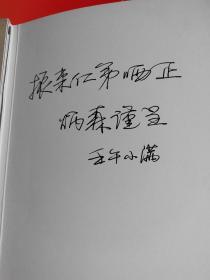 振东仁弟哂正
炳森谨呈
壬午小满